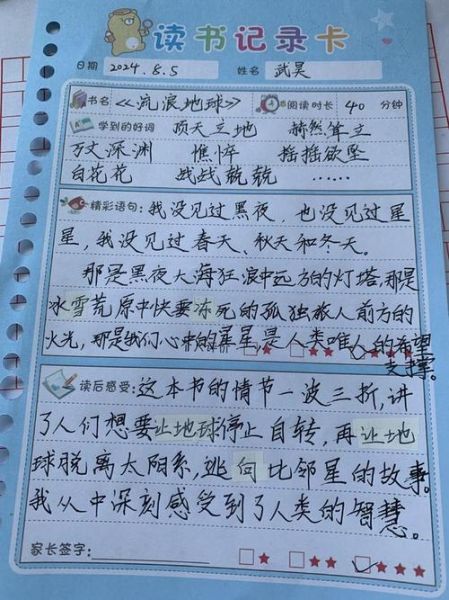 读书记录卡
日期 2024.8.5 姓名 武昊
书名 《流浪地球》 阅读时长 40 分钟
学到的好词 顶天立地 赫然耸立
万丈深渊 憔悴 摇摇欲坠
白花花 战战兢兢 ……
精彩语句：我没见过黑夜，也没见过星
星，我没见过春天、秋天和冬天。
那是黑夜大海狂浪中远方的灯塔，那是
冰雪荒原中快要冻死的孤独旅人前方的
火光，那是我们心中的星星，是人类唯一的希望
支撑。
读后感受：这本书的情节一波三折，讲
了人们想要让地球停止自转，再让地
球脱离太阳系，逃向比邻星的故事。
我从中深刻感受到了人类的智慧。
家长签字：